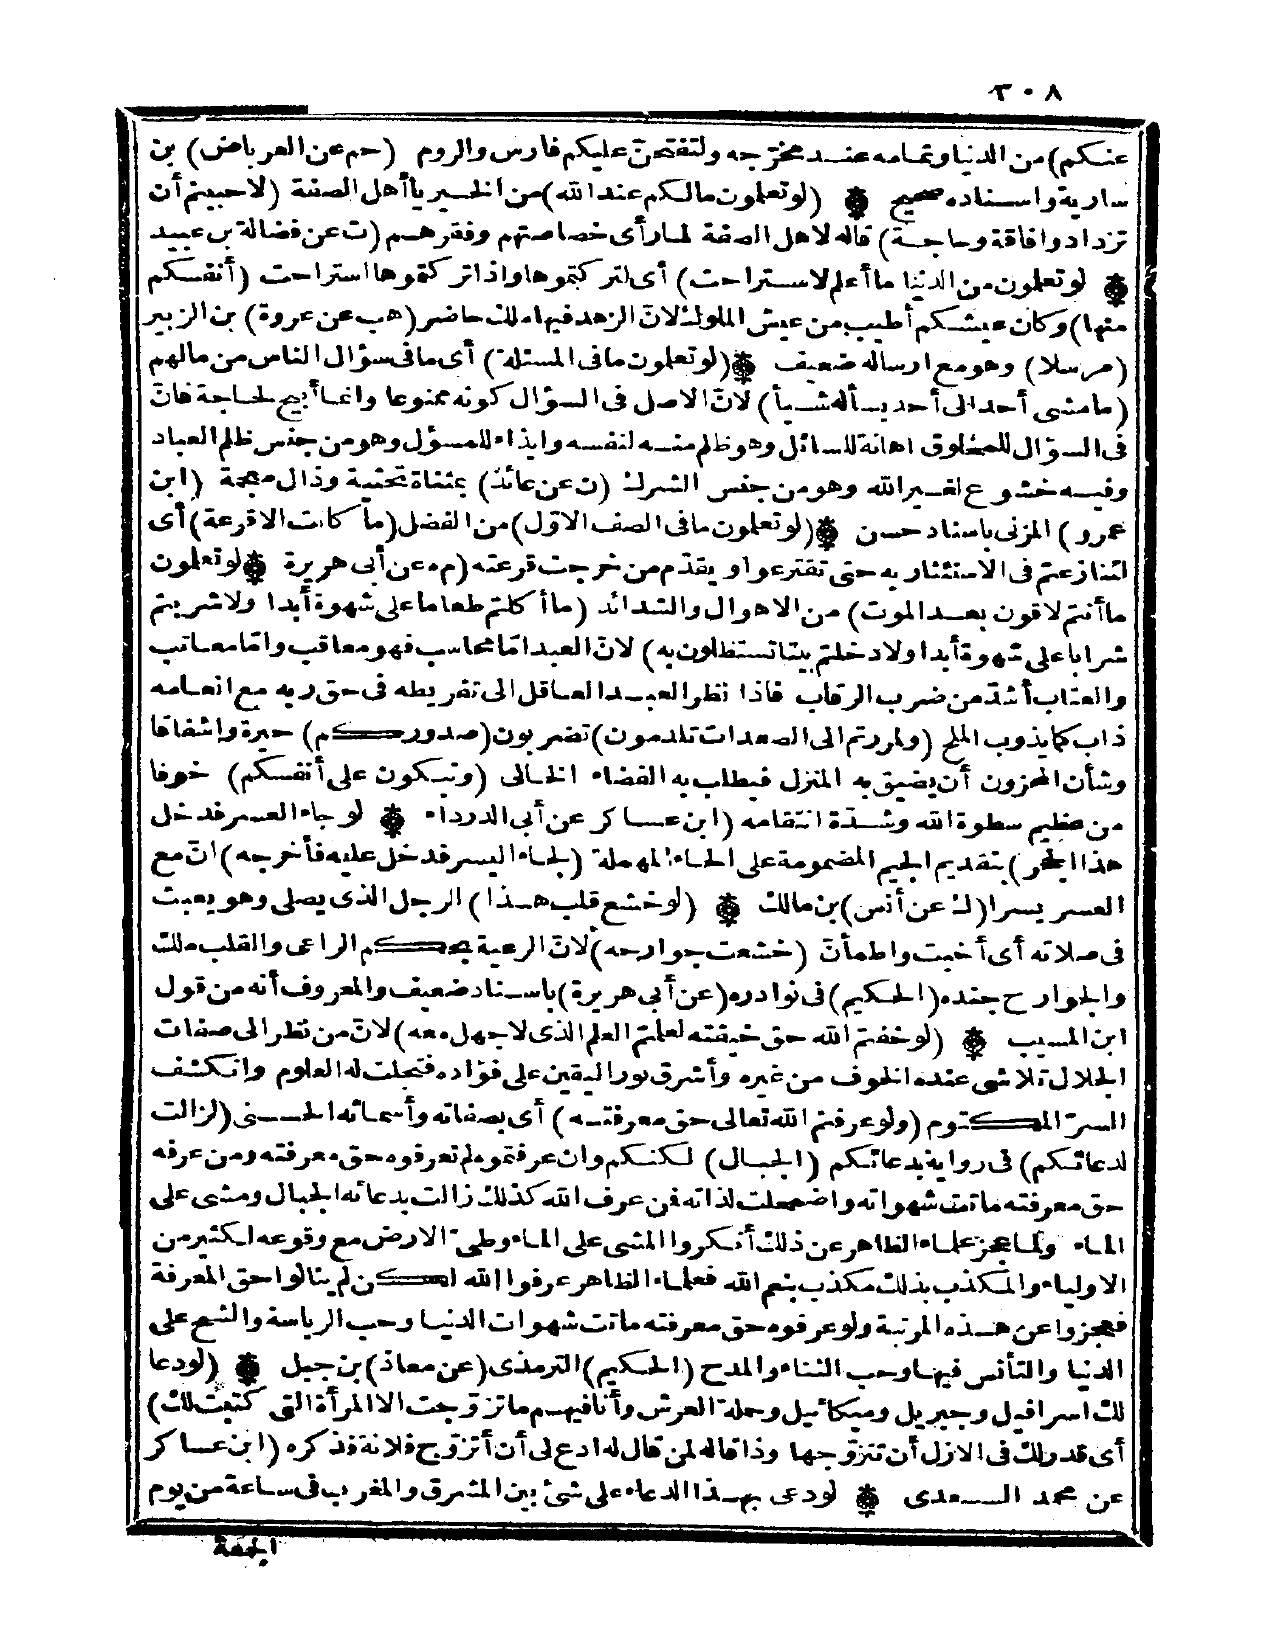 ٣٠٨
عنكم) من الدنيا وتمامه عند مخرجه ولتفتحن عليكم فارس والروم (حم عن العرباض) بن
سارية واسناده صحيح ❁ (لو تعلمون مالكم عند الله) من الخير ياأهل الصفة (لاحببتم أن
تزدادوا فاقة وحاجة) قاله لاهل الصفة لما رأى خصاصتهم وفقرهم (ت عن فضالة بن عبيد
❁ لو تعلمون من الدنيا ما أعلم لاستراحت) أى لتركتموها واذا تركتموها استراحت (أنفسكم
منها) وكان عيشكم أطيب من عيش الملوك لانّ الزهد فيها ملك حاضر (هب عن عروة) بن الزبير
(مرسلا) وهو مع ارساله ضعيف ❁ (لو تعلمون ما فى المسئلة) أى ما فى سؤال الناس من مالهم
(ما مشى أحد الى أحد يسأله شيأ) لانّ الاصل فى السؤال كونه ممنوعا وانما أبيح لحاجة فانّ
فى السؤال للمخلوق اهانة للسائل وهو ظلم منه لنفسه وايذاء للمسؤل وهو من جنس ظلم العباد
وفيه خشوع لغير الله وهو من جنس الشرك (ن عن عائذ) بمثناة تحتية وذال معجمة (ابن
عمرو) المزنى باسناد حسن ❁ (لو تعلمون ما فى الصف الاوّل) من الفضل (ما كانت الا قرعة) أى
لتنازعتم فى الاستئثار به حتى تقترعوا ويقدّم من خرجت قرعته (م ه عن أبى هريرة ❁ لو تعلمون
ما أنتم لاقون بعد الموت) من الاهوال والشدائد (ما أكلتم طعاما على شهوة أبدا ولا شربتم
شرابا على شهوة أبدا ولا دخلتم بيتا تستظلون به) لانّ العبد امّا محاسب فهو معاقب وامّا معاتب
والعتاب أشدّ من ضرب الرقاب فاذا نظر العبد العاقل الى تفريطه فى حق ربه مع انعامه
ذاب كما يذوب الملح (ولمررتم الى الصعدات تلدمون) تضربون (صدوركم) حيرة واشفاقا
وشأن المحزون أن يضيق به المنزل فيطلب به الفضاء الخالى (وتبكون على أنفسكم) خوفا
من عظيم سطوة الله وشدّة انتقامه (ابن عساكر عن أبى الدرداء ❁ لو جاء العسر فدخل
هذا الجحر) بتقديم الجيم المضمومة على الحاء المهملة (لجاء اليسر فدخل عليه فأخرجه) انّ مع
العسر يسرا (ك عن أنس) بن مالك ❁ (لو خشع قلب هذا) الرجل الذى يصلى وهو يعبث
فى صلاته أى أخبت واطمأنّ (خشعت جوارحه) لانّ الرعية بحكم الراعى والقلب ملك
والجوارح جنده (الحكيم) فى نوادره (عن أبى هريرة) باسناد ضعيف والمعروف أنه من قول
ابن المسيب ❁ (لو خفتم الله حق خيفته لعلمتم العلم الذى لا جهل معه) لانّ من نظر الى صفات
الجلال تلاشى عنده الخوف من غيره وأشرق نور اليقين على فؤاده فتجلت له العلوم وانكشف
السرّ المكتوم (ولو عرفتم الله تعالى حق معرفته) أى بصفاته وأسمائه الحسنى (لزالت
لدعائكم) فى رواية بدعائكم (الجبال) لكنكم وان عرفتموه لم تعرفوه حق معرفته ومن عرفه
حق معرفته ماتت شهواته واضمحلت لذاته فمن عرف الله كذلك زالت بدعائه الجبال ومشى على
الماء ولما عجز علماء الظاهر عن ذلك أنكروا المشى على الماء وطىّ الارض مع وقوعه لكثير من
الاولياء والمكذب بذلك مكذب بنعم الله فعلماء الظاهر عرفوا الله لكن لم ينالوا حق المعرفة
فعجزوا عن هذه المرتبة ولو عرفوه حق معرفته ماتت شهوات الدنيا وحب الرياسة والشح على
الدنيا والتأنس فيها وحب الثناء والمدح (الحكيم) الترمذى (عن معاذ) بن جبل ❁ (لو دعا
لك اسرافيل وجبريل وميكائيل وحملة العرش وأنا فيهم ما تزوّجت الا المرأة التى كتبت لك)
أى قدر لك فى الازل أن تتزوّجها وذا قاله لمن قال له ادع لى أن أتزوّج فلانة فذكره (ابن عساكر
عن محمد السعدى ❁ لو دعى بهذا الدعاء على شئ بين المشرق والمغرب فى ساعة من يوم
الجمعة